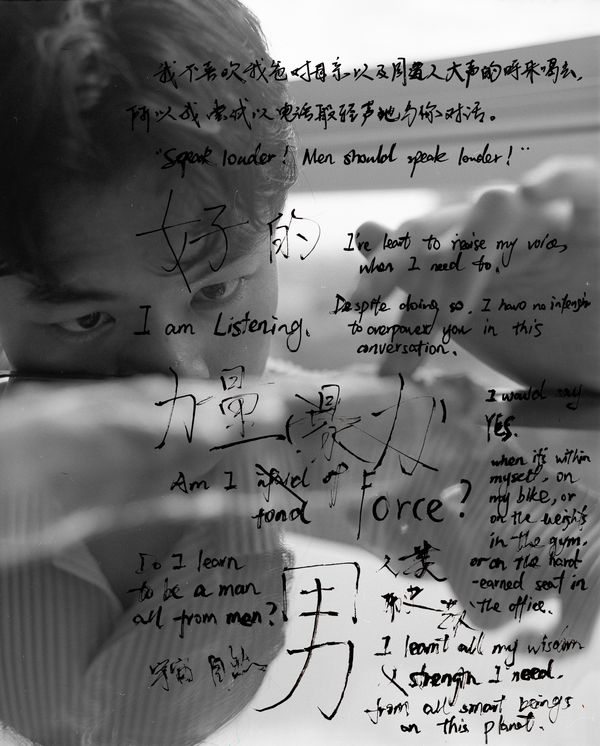 我不喜欢我爸对母亲以及周遭人大声的呼来喝去,
所以我尝试以电话般轻声地与你对话。
"Speak louder! Men should speak louder!"
好的
I've leart to raise my voice,
when I need to.
I am Listening.
Despite doing so, I have no intension
to overpower you in this
conversation.
力量(暴力)
I would say
YES.
when it's within
myself, on
my bike, or
on the weights
in the gym.
or on the hard
-earned seat in
the office.
Am I afraid of Force?
fond
Do I learn
to be a man
all from men?
男
人类
I learnt all my wisdom
& strength I need.
from all smart beings
on this planet.
宇宙 自然